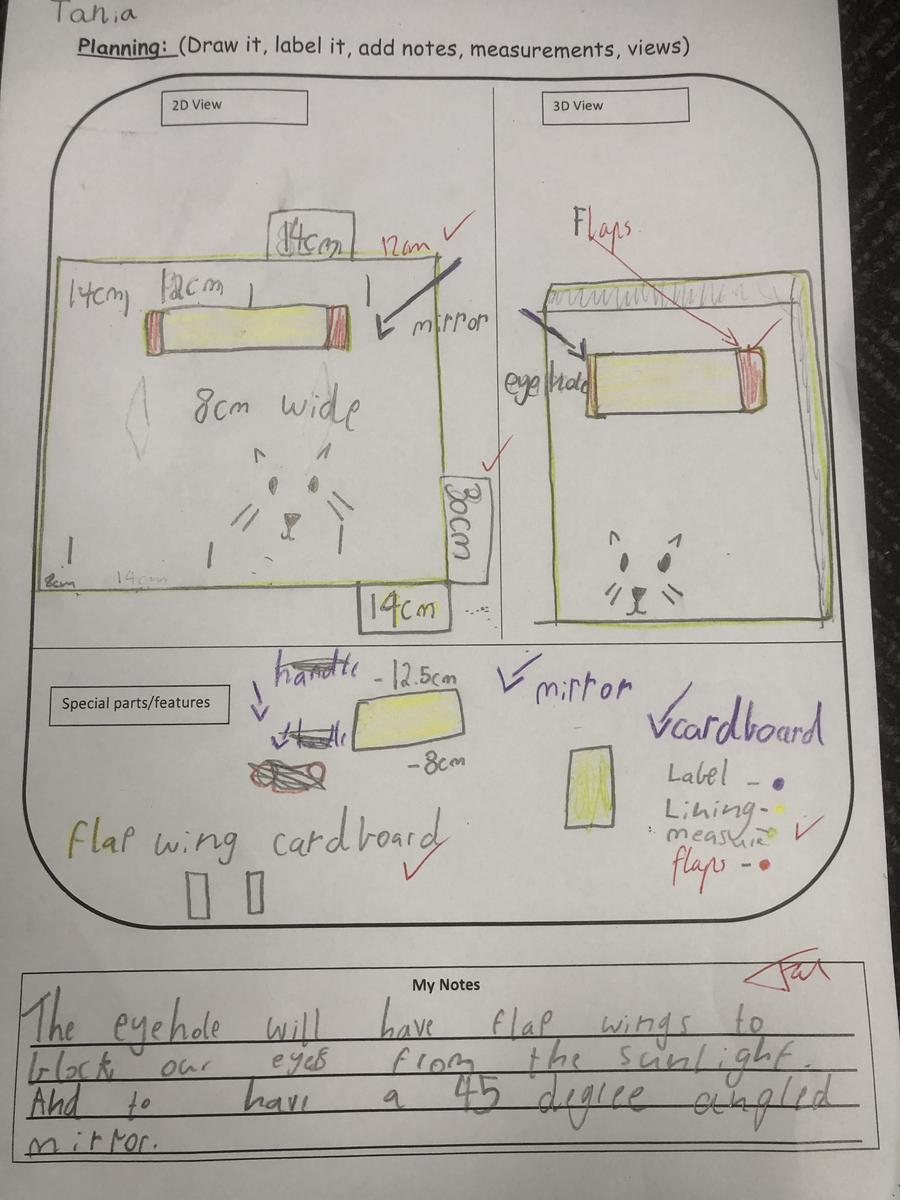 Tania
Planning: (Draw it, label it, add notes, measurements, views)
2D View
3D View
14cm
12cm
Flaps
14cm
12cm
mirror
eyehole
8cm wide
30cm
8cm
14cm
14cm
Special parts/features
handle
- 12.5cm
mirror
cardboard
- 8cm
Label -
Lining -
measure
flaps -
flap wing cardboard
My Notes
The eyehole will have flap wings to
block our eyes from the sunlight.
And to have a 45 degree angled
mirror.